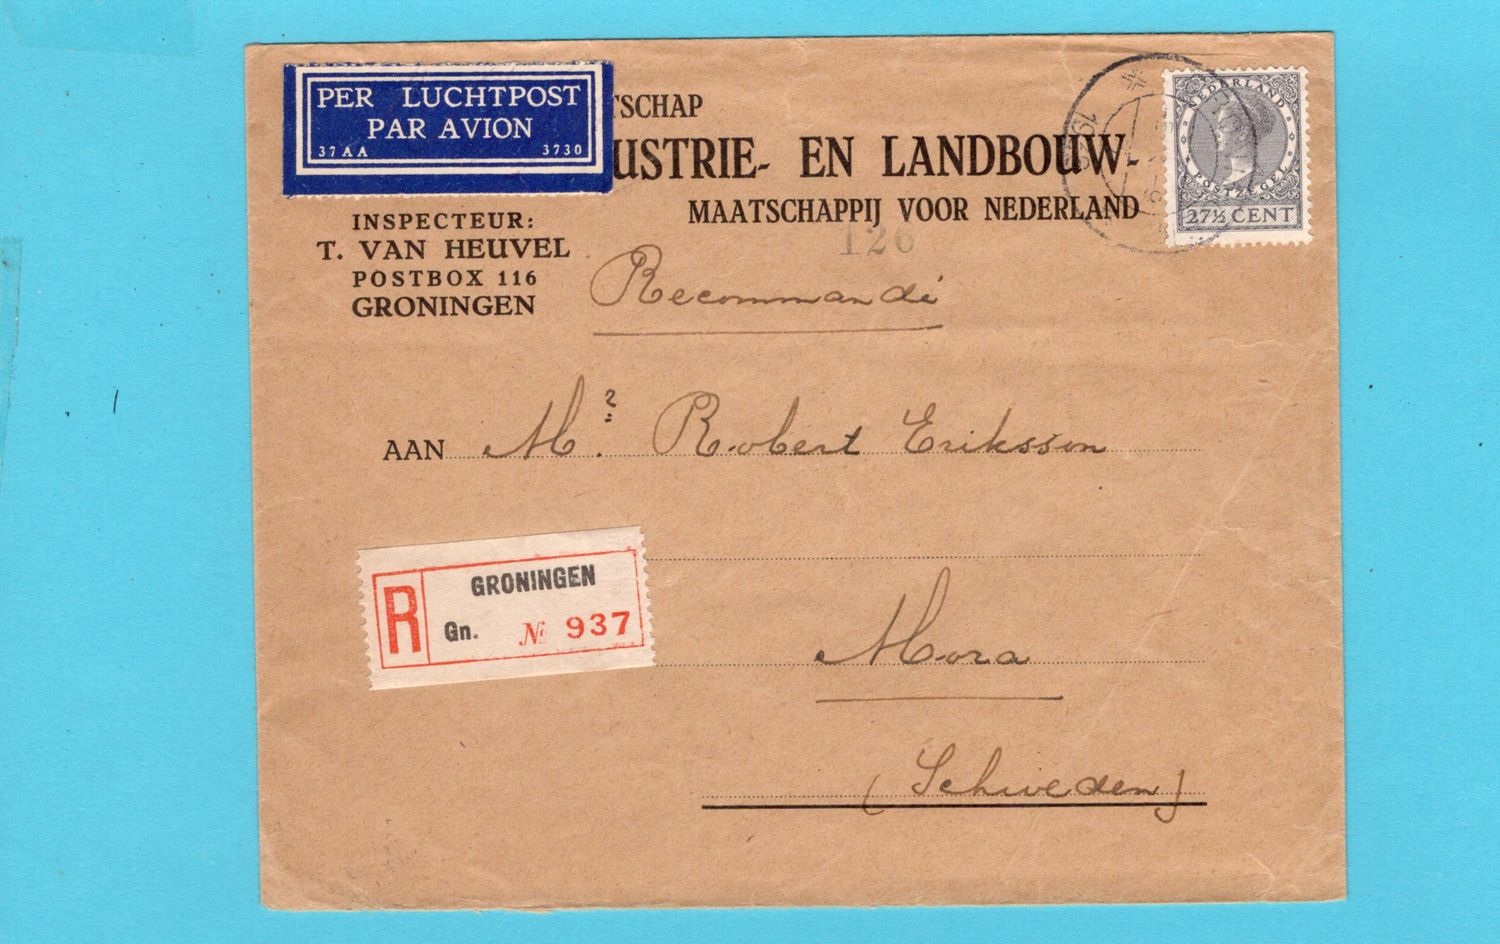 PER LUCHTPOST
PAR AVION
37AA 3730
TSCHAP
USTRIE- EN LANDBOUW-
MAATSCHAPPIJ VOOR NEDERLAND
INSPECTEUR:
T. VAN HEUVEL
POSTBOX 116
GRONINGEN
126
Recommandé
NEDERLAND
POSTZEGEL
27½ CENT
AAN Mr. Robert Eriksson
R GRONINGEN
Gn. № 937
Mora
(Schweden)